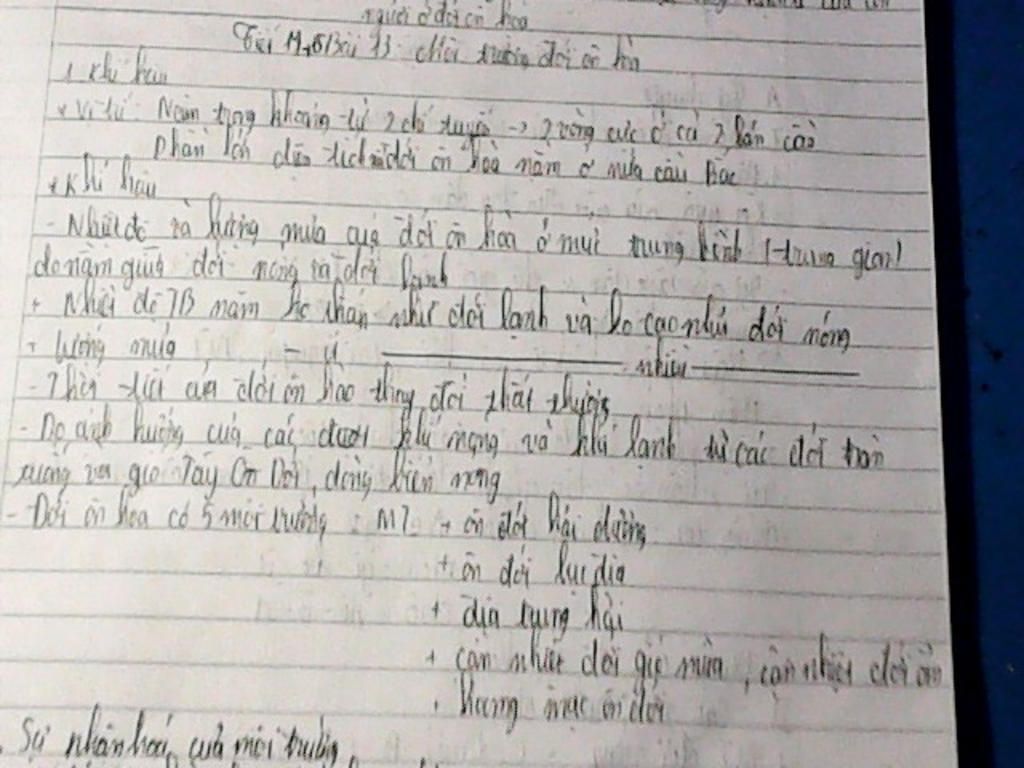 người ở đới ôn hòa
Bài 13: Môi trường đới ôn hòa
1 Khí hậu
* Vị trí: Nằm trong khoảng từ 2 chí tuyến → 2 vòng cực ở cả 2 bán cầu
Phần lớn diện tích đới ôn hoà nằm ở nửa cầu Bắc
* Khí hậu
- Nhiệt độ và lượng mưa của đới ôn hoà ở mức trung bình (trung gian)
do nằm giữa đới nóng và đới lạnh
+ Nhiệt độ TB năm thấp như đới lạnh và ko cao như đới nóng
+ Lượng mưa nhiều
- Thời tiết của đới ôn hào thay đổi thất thường
- Do ảnh hưởng của các đượt khí nóng và khí lạnh từ các đới tràn
xuống và gió Tây Ôn Đới, dòng biển nóng
- Đới ôn hoa có 5 môi trường: MT + ôn đới hải dương
+ ôn đới lục địa
+ địa trung hải
+ cận nhiệt đới gió mùa, cận nhiệt đới ẩm
+ hoang mạc ôn đới
Sự phân hoá của môi trường